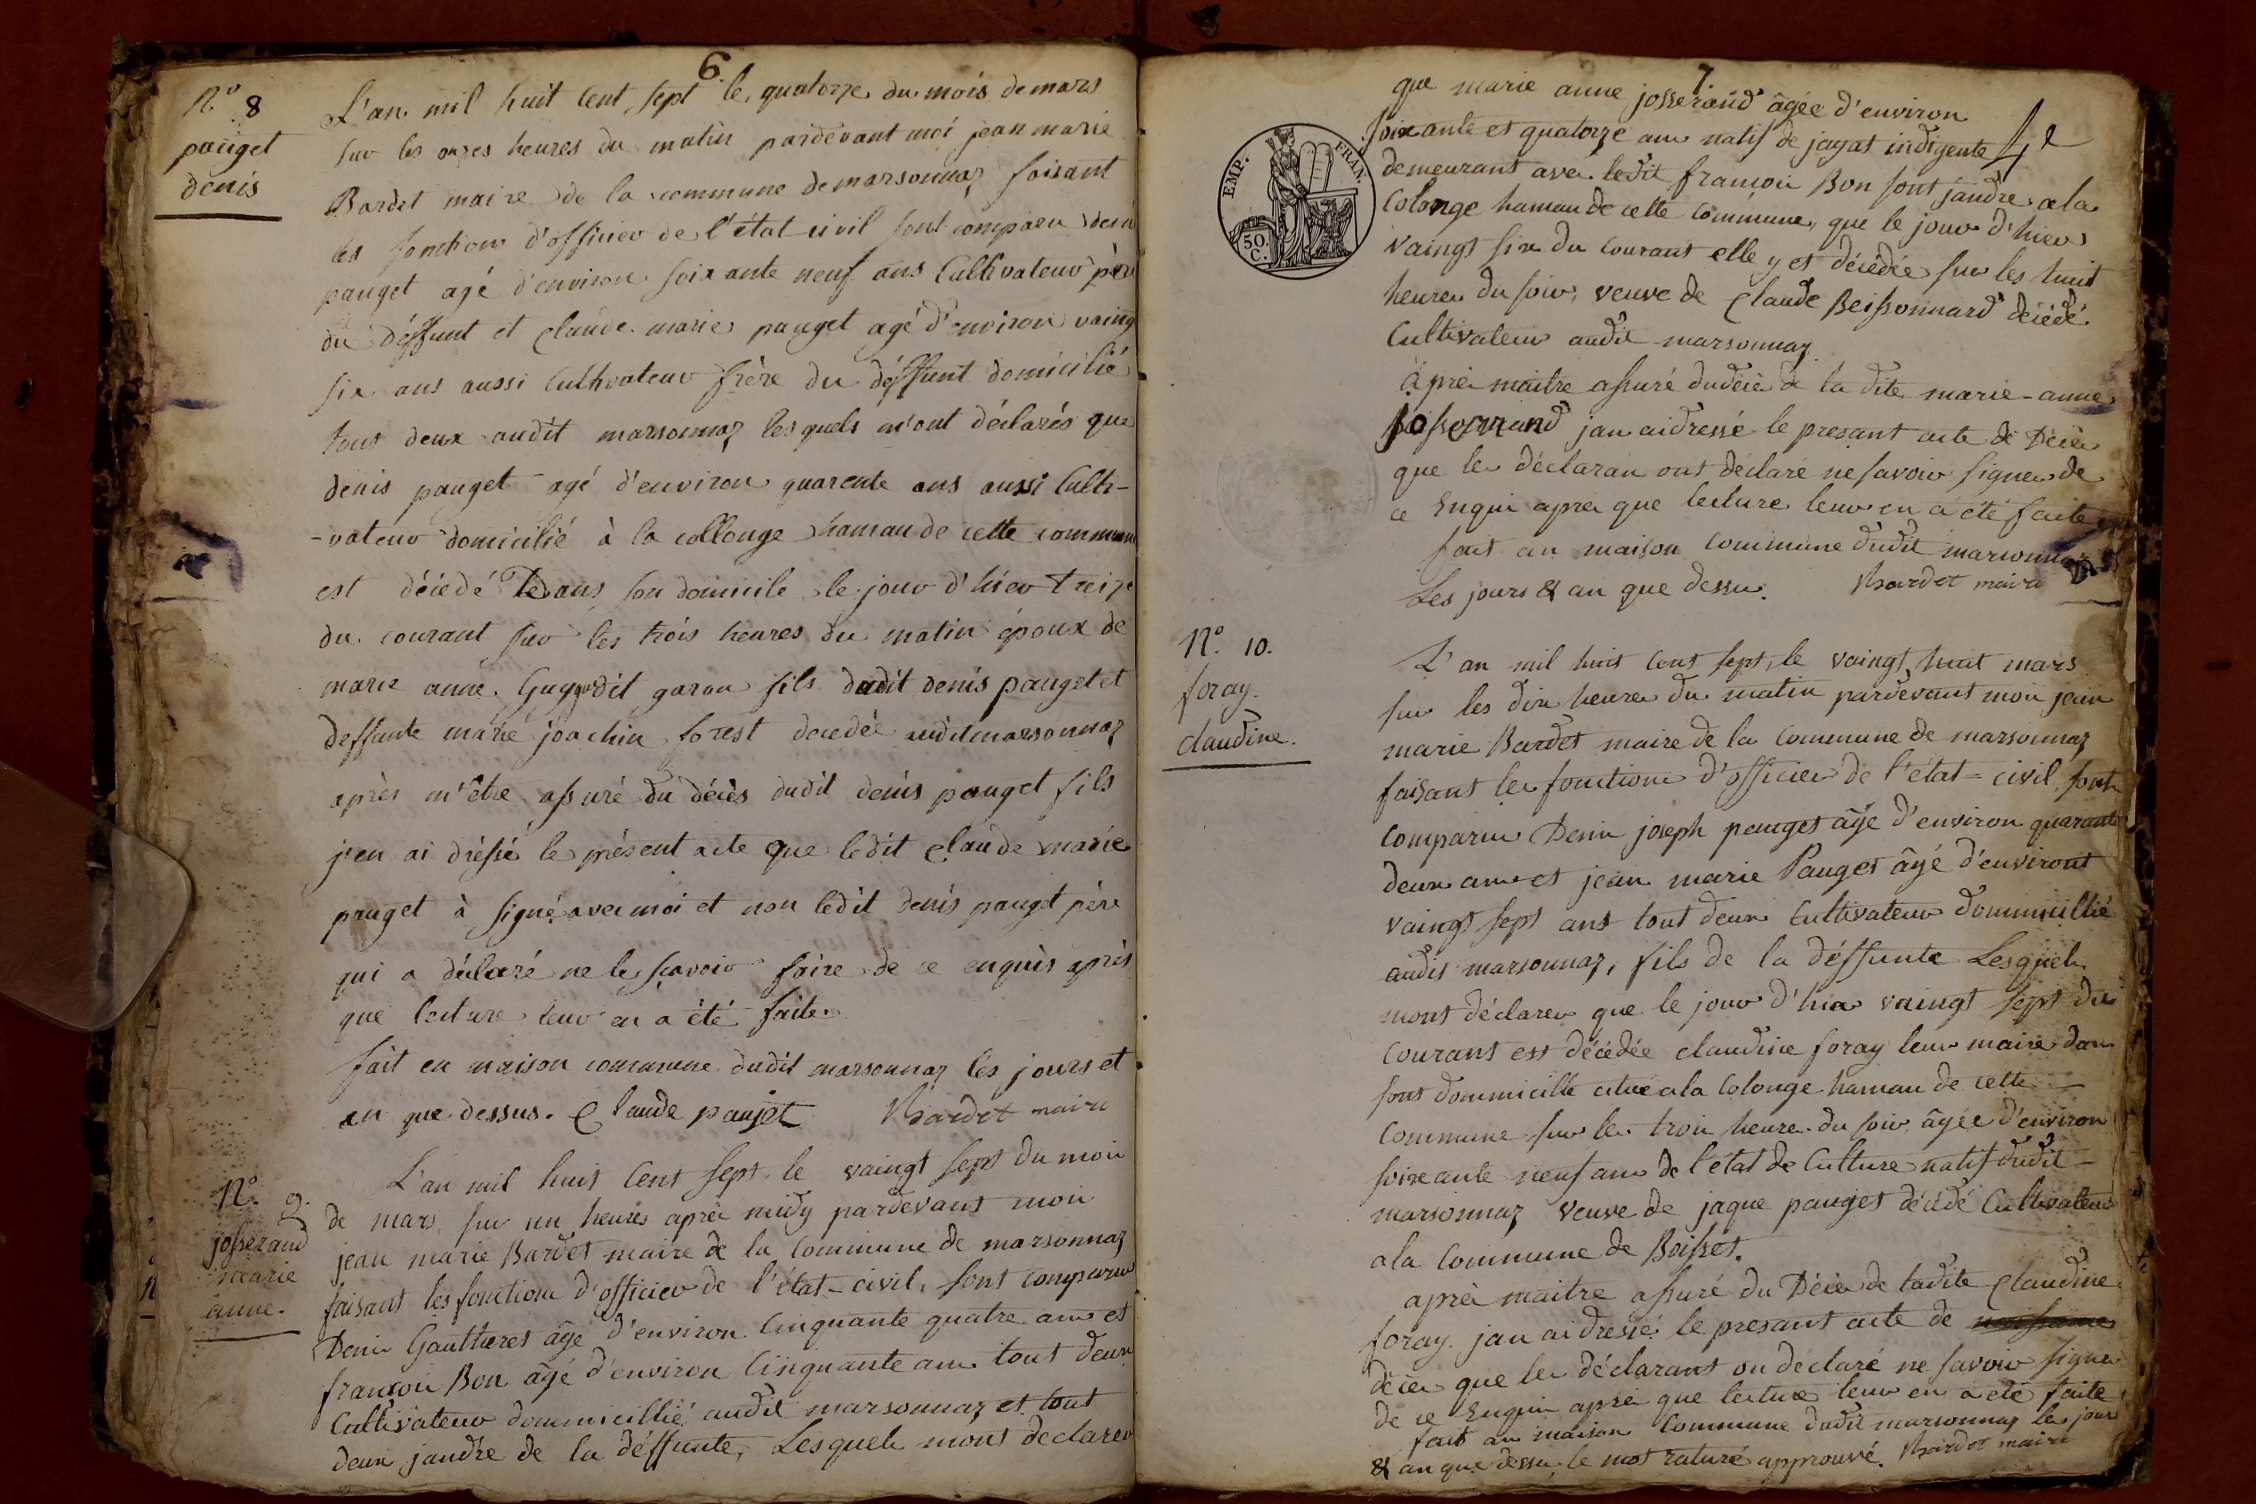 6.
N.º 8
pauget
denis
L'an mil huit cent sept le quatorze du mois de mars
sur les onzes heures du matin pardevant moi jean marie
Bardet maire de la commune de marsonnaz faisant
les fonctions d'officier de l'état-civil sont comparu denis
pauget agé d'environ soixante neuf ans Cultivateur père
du déffunt et Claude marie pauget agé d'environ vaingt
six ans aussi Cultivateur frère du déffunt domicilié
tous deux audit marsonnaz lesquels m'ont déclarés que
denis pauget agé d'environ quarente ans aussi Culti-
-vateur domicilié à la collonge hamau de cette commune
est décedé dans son domicile le jour d'hier treize
du courant sur les trois heures du matin époux de
marie anne dit garau fils dudit denis pauget et
deffunte marie joachin forest decedée auditmarsonnaz
après m'être assuré du décès dudit denis pauget fils
j'en ai dréssé le présent acte que ledit Claude marie
pauget à signé avec moi et non ledit denis pauget père
qui a déclaré ne le sçavoir faire de ce enquis après
que lecture leur en a été faite.
fait en maison commune dudit marsonnaz les jours et
an que dessus. Claude paujet Bardet maire
N.º 9.
josserand
marie
anne.
L'an mil huit Cent sept le vaingt sept du moi
de mars sur un heures aprèi midy pardevant moi
jean marie Bardet maire de la Commune de marsonnaz
faisant les fonction d'officier de l'état-civil, sont comparu
Deni Gautheret âgé d'environ Cinquante quatre an et
françoi Bon âgé d'environ Cinquante an tout deux
Cultivateur dommicillié audit marsonnaz et tout
deux jandre de la déffunte, Lesquels mont declarer
7.
4e
EMP. FRAN.
50. C.
que marie anne josserand âgée d'environ
soixante et quatorze an natif de jayat indigente
demeurant avec ledit françoi Bon sont jandre a la
Colonge hamau de cette Commune, que le jour d'hier
vaingt six du courant elle y et décédée sur les huit
heure du soir, veuve de Claude Beissonnard décédé
Cultivateur audit marsonnaz
âprèi maitre assuré dudécè de la dite marie-anne
Josserrand jan aidressé le presant acte de Décè
que le déclaran ont déclaré ne savoir signer de
ce Enqui aprè que lecture leur en a été faite
fait an maison Commune dudit marsonnaz
Les jours & an que dessu. Bardet maire
N.º 10.
foray.
claudine.
L'an mil huit Cent sept, le vaingt huit mars
sur les dix heure du matin pardevant moi jean
marie Bardet maire de la Commune de marsonnaz
faisant le fonction d'officier de l'état-civil sont
Comparu Deni joseph pauget âgé d'environ quarante
deux an et jean marie Pauget âgé d'environt
vaingt sept ans tout deux Cultivateur dommicillié
audit marsonnaz, fils de la déffunte Lesquels
mont déclarer que le jour d'hier vaingt sept du
Courant est décédée claudine foray leur maire dan
sont dommicille citué a la Colonge hamau de cette
Commune sur le troi heure du soir âgée d'environ
soixante neuf an de l'état de Culture natif dudit
marsonnaz veuve de jaque pauget décédé Cultivateur
a la Commune de Boisset.
aprèi maitre assuré du Décè de ladite Claudine
foray jan aidressé le presant acte de
décè que le déclarant on déclaré ne savoir signer
de ce Enqui aprè que lecture leur en a été faite
fait an maison Commune dudit marsonnaz le jour
& an que dessu, le mot raturé approuvé. Bardet maire